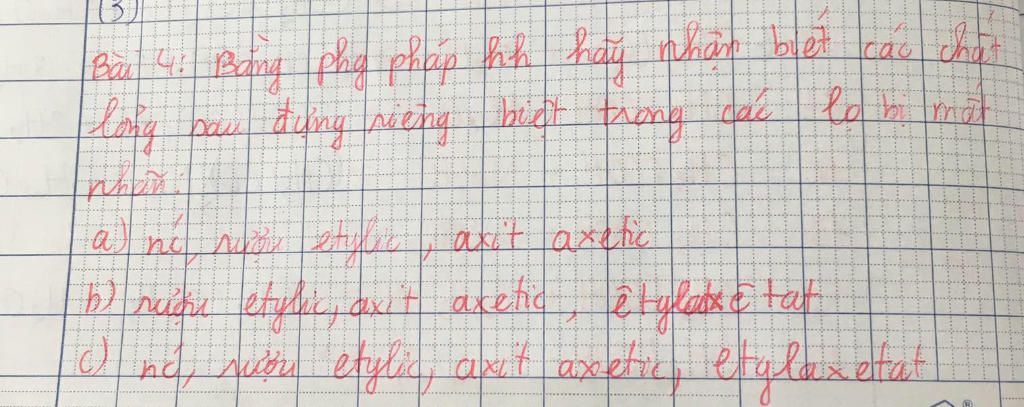 (3)
Bài 4: Bằng phg pháp hh hãy nhận biết các chất
lỏng sau đựng riêng biệt trong các lọ bị mất
nhãn:
a) nc, rượu etylic, axit axetic
b) rượu etylic, axit axetic, êtylaxêtat
c) nc, rượu etylic, axit axetic, etylaxetat